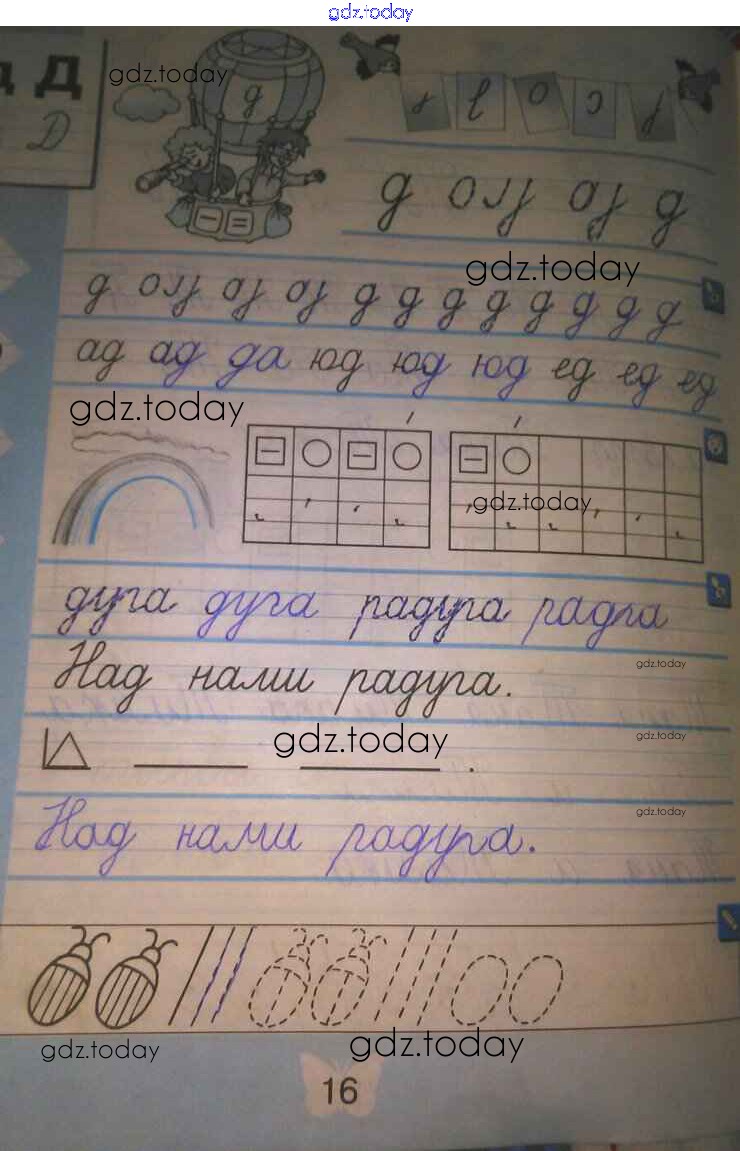 gdz.today
Д
gdz.today
Д
д
gdz.today
д д д д д д д д
ад ад да юд юд юд ед ед ед
gdz.today
gdz.today
дуга дуга радуга радга
gdz.today
Над нами радуга.
gdz.today
gdz.today
gdz.today
Над нами радуга.
gdz.today
gdz.today
16